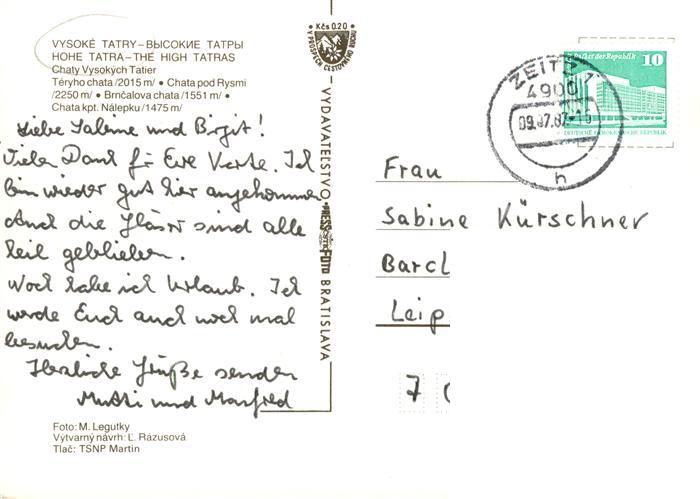 VYSOKÉ TATRY–ВЫСОКИЕ ТАТРЫ
HOHE TATRA–THE HIGH TATRAS
Chaty Vysokých Tatier
Téryho chata /2015 m/ • Chata pod Rysmi
/2250 m/ • Brnčalova chata /1551 m/ •
Chata kpt. Nálepku /1475 m/
Liebe Sabine und Birgit!
Vielen Dank für Eure Karte. Ich
bin wieder gut hier angekommen.
Auch die Gläser sind alle
heil geblieben.
Noch habe ich Urlaub. Ich
werde Euch auch noch mal
besuchen.
Herzliche Grüße senden
Mutti und Manfred
Foto: M. Legutky
Výtvarný návrh: Ľ. Rázusová
Tlač: TSNP Martin
Kčs 0.20
V PROSPECH CESTOVNÉHO RUCHU
VYDAVATEĽSTVO PRESSFOTO BRATISLAVA
ZEITZ 1
4900
09.07.87-16
h
Palast der Republik 10
DEUTSCHE DEMOKRATISCHE REPUBLIK
Frau
Sabine Kürschner
Barcl
Leip
7 0